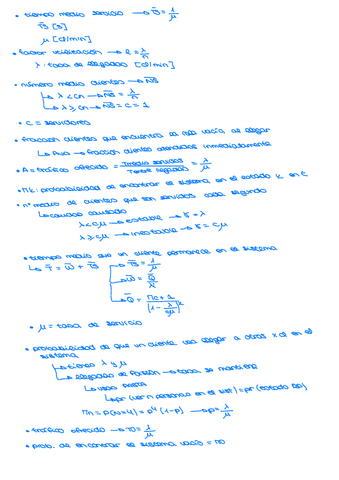 • tiempo medio servicio → s̄ = 1/μ
T̄s [s]
μ [cl/min]
• factor utilización → ρ = λ/μ
λ: tasa de llegadas [cl/min]
• número medio clientes → N̄s
λ < cμ → N̄s = λ/μ
λ ≥ cμ → N̄s = c = 1
• c = servidores
• fracción clientes que encuentra la cola vacía al llegar
fracción clientes atendidos inmediatamente
• A = tráfico ofrecido = = λ/μ
• πk: probabilidad de encontrar el sistema en el estado k en c
• nº medio de clientes que son servidos cada segundo
caudal cursado
λ < cμ → estable → γ = λ
λ ≥ cμ → inestable → γ = cμ
• tiempo medio que un cliente permanece en el sistema
T̄ = W̄ + T̄s
T̄s = 1/μ
Q̄ =
• μ = tasa de servicio
• probabilidad de que un cliente vea llegar a otros x cl en el
sistema
tiempo λ y μ
llegadas de Poisson → tasa se mantiene
pr (ver n personas en el sist) = pr (estado
πn = p(n=4) = ρ⁴ (1-ρ) → ρ = λ/μ
• tráfico ofrecido → = λ/μ
• prob. de encontrar el sistema vacío = π0